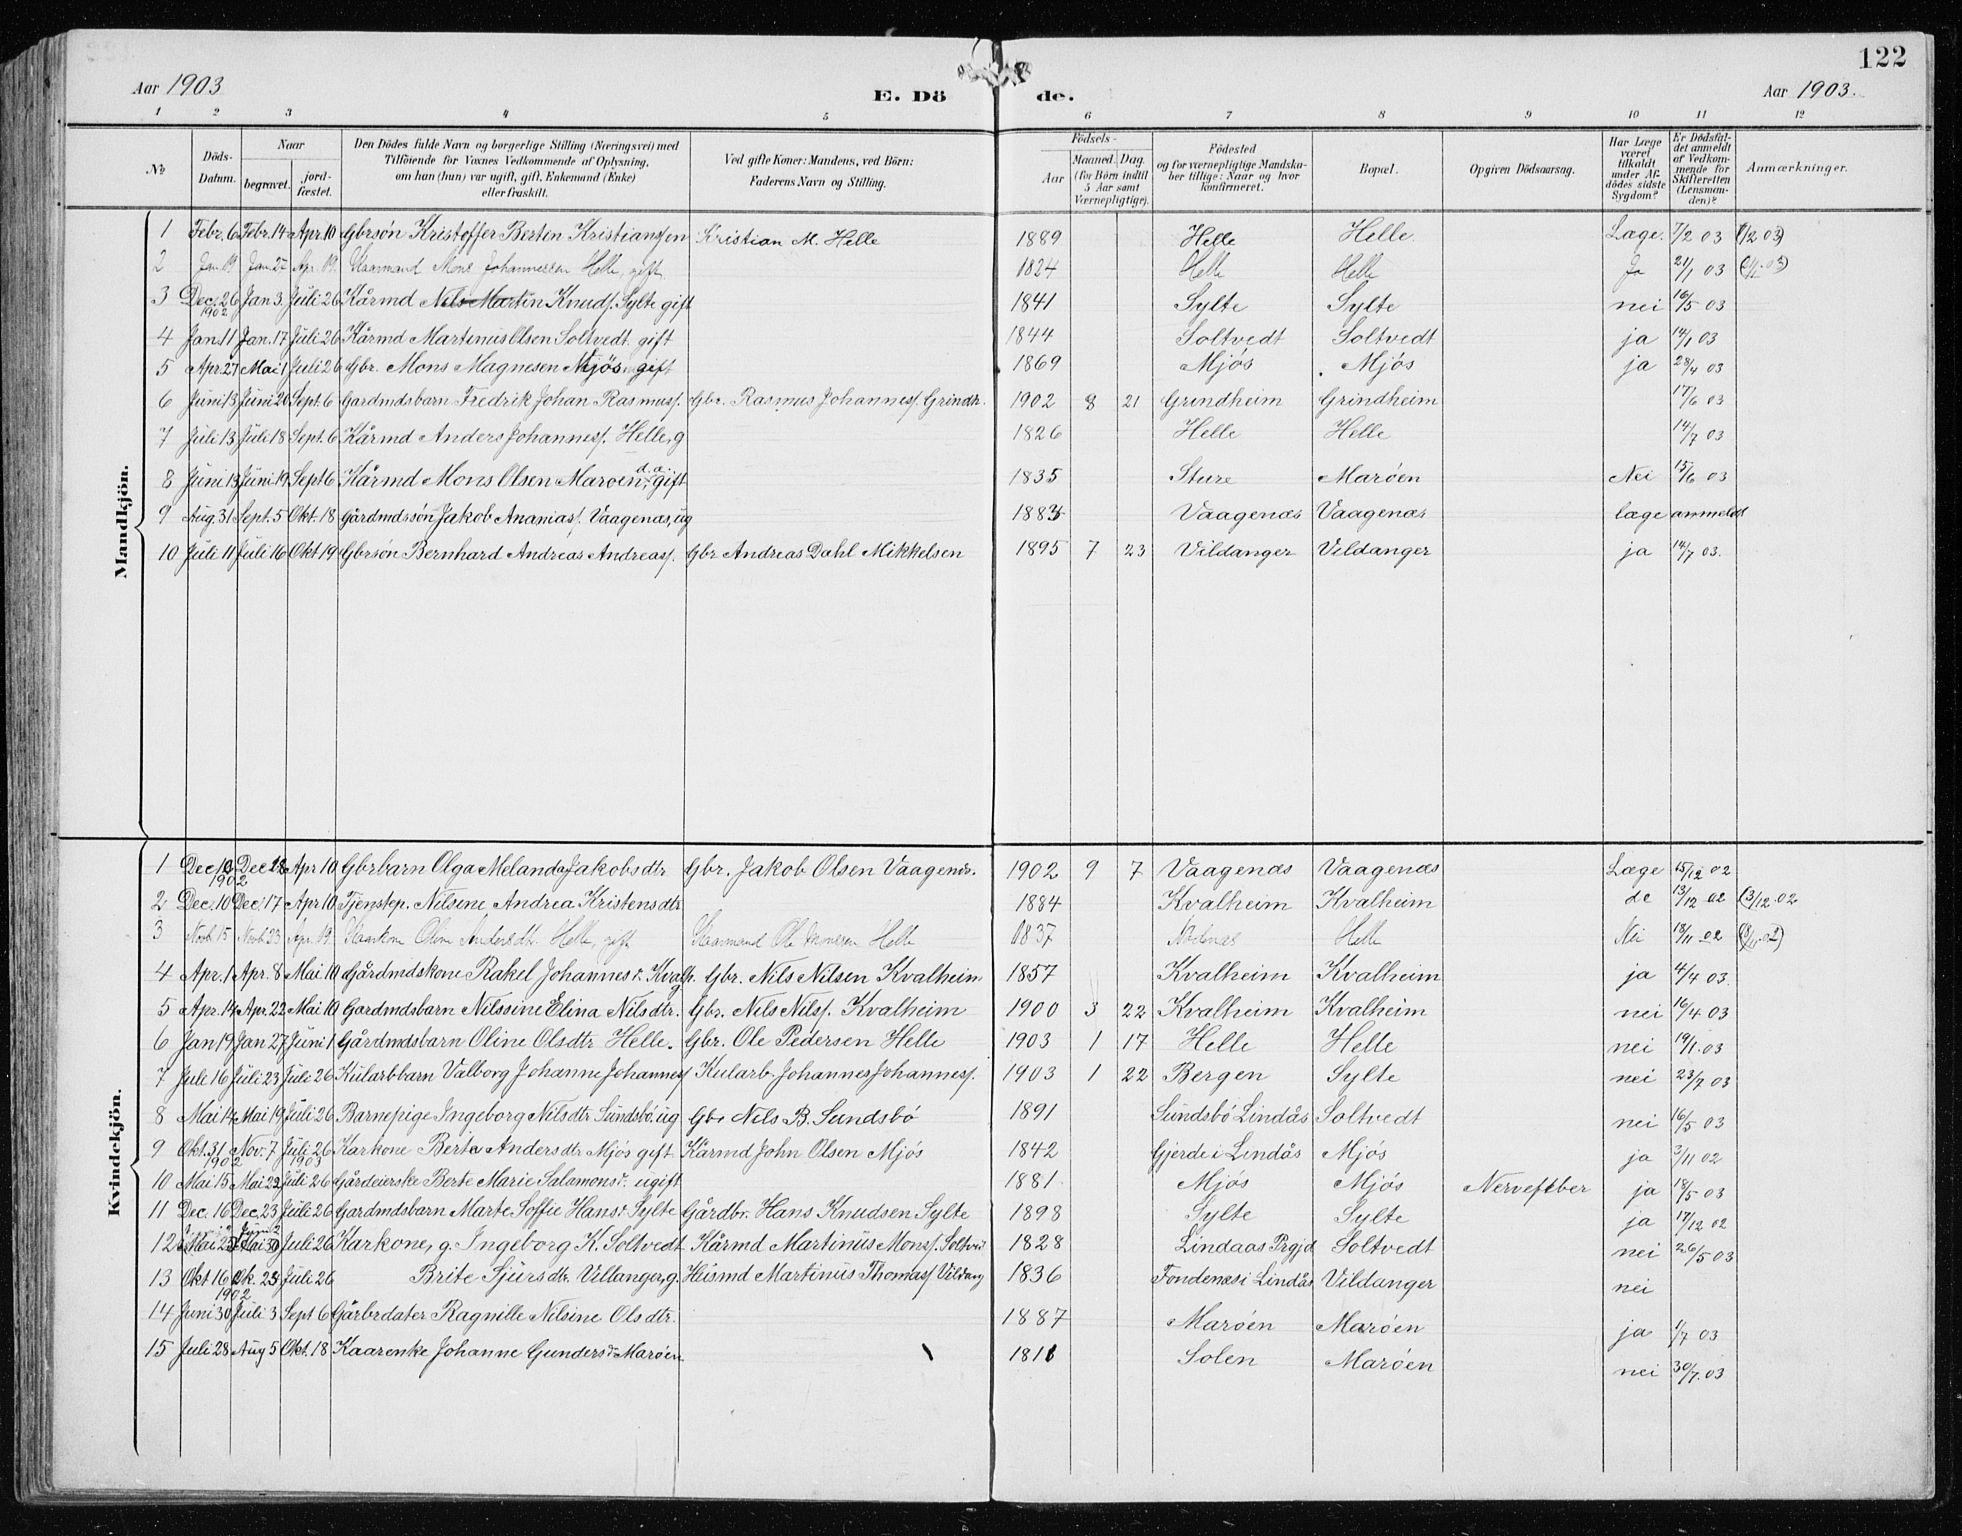 122
Aar 1903
E. Dö de.
Aar 1903.
1 2 3 4 5 6 7 8 9 10 11 12
No.
Döds-Datum.
Naar
begravet.
jord-fæstet.
Den Dödes fulde Navn og borgerlige Stilling (Næringsvei) med
Tilföiende for Voxnes Vedkommende af Oplysning,
om han (hun) var ugift, gift, Enkemand (Enke)
eller fraskilt.
Ved gifte Koner: Mandens, ved Börn:
Faderens Navn og Stilling.
Födsels-
Aar
Maaned. Dag.
(for Börn indtil
5 Aar samt
Værnepligtige).
Födested
og for værnepligtige Mandska-
ber tillige: Naar og hvor
konfirmeret.
Bopæl.
Opgiven Dödsaarsag.
Har Læge
været
tilkaldt
under Af-
dödes sidste
Sygdom?
Er Dödsfal-
det anmeldt
af Vedkom-
mende for
Skifteretten
(Lensman-
den)?
Anmærkninger.
Mandkjön.
1 Febr. 6 Febr. 14 Apr. 10 Gbrsön Kristoffer Bertin Kristianssen Kristian M. Helle 1889 Helle Helle Læge. 7/2 03
2 Jan. 19 Jan. 27 Apr. 19. Kaarmand Mons Johannessen Helle, gift 1824 Helle Helle Ja 21/1 03
3 Dec. 26 1902 Jan 3 Juli 26 Kårmd Nils Martin Knuds. Sylte gift 1841 Sylte Sylte nei 16/5 03
4 Jan. 11 Jan. 17 Juli 26 Kårmd Martinus Olsen Soltvedt gift 1844 Soltvedt Soltvedt ja 14/1 03
5 Apr. 27 Mai 1 Juli 26 Gbr. Mons Magnesen Mjös gift 1869 Mjós Mjós ja 28/4 03
6 Juni 13 Juni 20 Sept. 6 Gardmdsbarn Fredrik Johan Rasmuss. Gbr. Rasmus Johanness. Grindh. 1902 8 21 Grindheim Grindheim 17/6 03
7 Juli 13 Juli 18 Sept. 6 Kårmd Anders Johanness. Helle, g 1826 Helle Helle 14/7 03
8 Juni 13 Juni 19 Sept 6 Kårmd Mons Olsen Maroen, gift 1835 Sture Maröen Nei 15/6 03
9 Aug. 31 Sept. 5 Okt. 18 Gårdmdssön Jakob Ananiass. Vaagenæs, ug 1883 Vaagenæs Vaagenæs læge anmeldt
10 Juli 11 Juli 16 Okt 19 Gbrsön Bernhard Andreas Andreass. Gbr Andreas Dahl Mikkelsen 1895 7 23 Vildanger Vildanger ja 14/7 03.
Kvindekjön.
1 Dec. 1902 Dec Apr 10 Gbrbarn Olga Melanda Jakobsdtr Gbr. Jakob Olsen Vaagenæs. 1902 9 7 Vaagenæs Vaagenæs Læge 15/12 02
2 Dec. 10 Dec. 17 Apr 10 Tjenstep. Nilsine Andrea Kristensdtr 1884 Kvalheim Kvalheim do 13/12 02
3 Novb. 15 Novb. 23 Apr. 19. Kaarkone Oline Andersdtr. Helle, gift Kaarmand Ole Monsen Helle 1837 Helle Nei 18/11 02
4 Apr. 1 Apr. 8 Mai 10 Gårdmdskone Rakel Johannesd. Kvalh. Gbr. Nils Nilsen Kvalheim 1857 Kvalheim Kvalheim ja 4/4 03.
5 Apr. 14 Apr. 22 Mai 10 Gardmdsbarn Nilssine Elina Nilsdtr. Gbr. Nils Nilss. Kvalheim 1900 3 22 Kvalheim Kvalheim nei 16/4 03
6 Jan 19 Jan 27 Juni 1 Gårdmdsbarn Oline Olsdtr Helle. Gbr. Ole Pedersen Helle 1903 1 17 Helle Helle nei 19/1.03
7 Juli 16 Juli 23 Juli 26 Kularbbarn Valborg Johanne Johanness Kularb. Johannes Johanness. 1903 1 22 Bergen Sylte nei 23/7 03
8 Mai 14 Mai 19 Juli 26 Barnepige Ingeborg Nilsdtr Sundsbö. ug Gbr Nils B. Sundsbö 1891 Sundsbö Lindås Soltvedt nei 16/5 03
9 Okt. 31 1902 Nov. 7 Juli 26 1903 Karkone Berta Andersdtr Mjós gift Kårmd John Olsen Mjós 1842 Gjerde i Lindås Mjós ja 3/11 02
10 Mai 15 Mai 22 Juli 26 Gårdeierske Berte Marie Salamonsd. ugift 1881 Mjós Mjós Nervefeber ja 18/5 03
11 Dec. 16 Dec. 23 Juli 26 Gardmdsbarn Marte Soffie Hansd Sylte Gårdbr. Hans Knudsen Sylte 1898 Sylte Sylte ja 17/12 02
12 Mai Mai Juli 26 Karkone, g. Ingeborg K. Soltvedt Kårmd Martinus Monss. Soltved 1828 Lindaas Prgjd Soltvedt nei 26/5 03
13 Okt 16 1902 Ok. 23 Juli 26 Brite Sjursdtr. Villanger, g. Husmd Martinus Thomass Vildang 1836 Fondenæs i Lindås Vildanger nei
14 Juni 30 Juli 3 Sept 6 Gårbrdater Ragnille Nilsine Olsdtr. 1887 Maröen Maröen ja 1/7 03
15 Juli 28 Aug 5 Okt. 18 Kaarenke Johanne Gundersd Maröen 1811 Solen Maröen nei 30/7.03